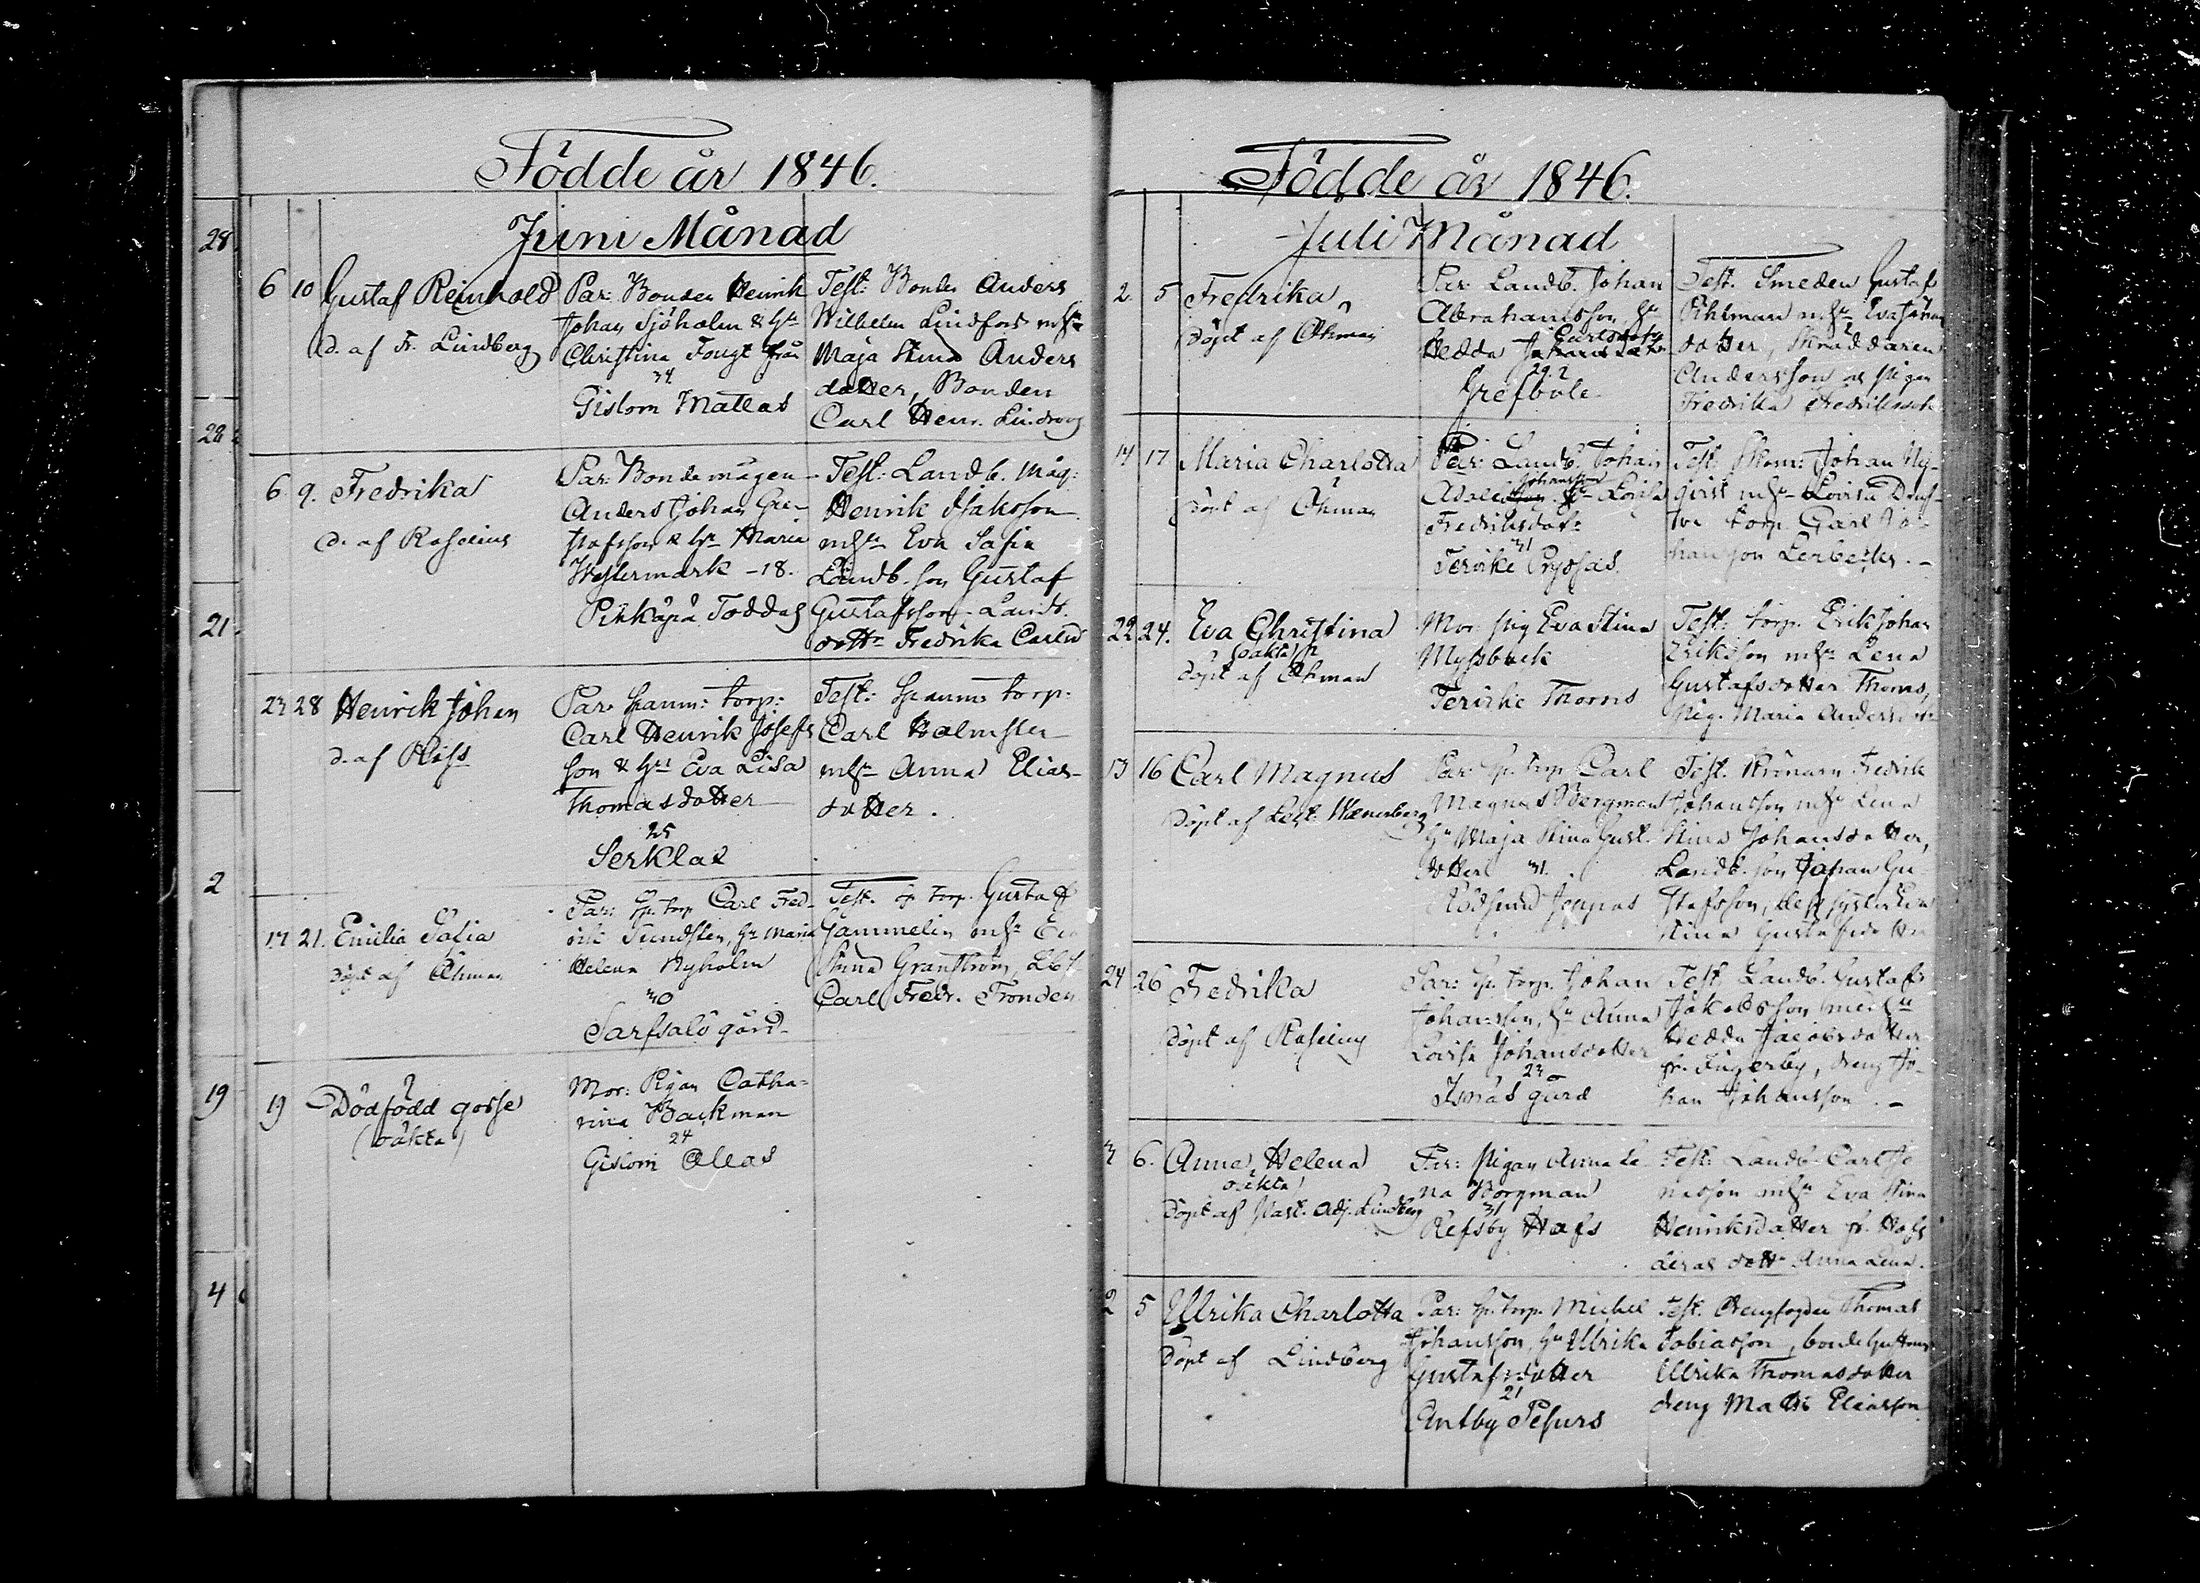 Födde år 1846.
Juni Månad
28
28
21
2
19
4
6 10 Gustaf Reinhold
d. af Fr. Lindberg
Par: Bonden Henrik
Johan Sjöholm & Hu
Christina Fougt från
34
Gislom Mattas
Test: Bonden Anders
Wilhelm Lindfors m hu
Maja Stina Anders
dotter, Bonden
Carl Henr. Lindroos
6 9. Fredrika
d. af Roselius
Par: Bondemågen
Anders Johan Gu-
stafsson & Hu Maria
Westermark - 18.
Pikkapä Toddas
Test: Landb. måg:
Henrik Isaksson
m hu Eva Sofia
Landb. son Gustaf
Gustafsson - Landb.
dottr Fredrika Carlsd
23 28 Henrik Johan
d. af Ross
Par: Spanm: torp:
Carl Henrik Josefs
son & Hu Eva Lisa
Thomasdotter
25
Serklax
Test: Spanm: torp.
Carl Halmsten
m hu Anna Elias-
dotter.
17 21. Emilia Sofia
Döpt af Öhman
Par: Sp. torp Carl Fred-
rik Sundsten, Hu Maria
Helena Nyholm
30
Sarfsalö gård
Test. Sp torp. Gustaf
Gammelin m hu Eva
Stina Granström,
Carl Fredr. Fronden
19 Dödfödd gosse
(oäkta)
Mor: Pigan Catha-
rina Backman
24
Gislom Ollas
Födde år 1846.
Juli Månad
2 5 Fredrika
Döpt af Öhman
Par: Landb. Johan
Abrahamsson, Hu
Hedda Carlsdotter
29.2
Grefböle
Test. Smeden Gustaf
Pihlman m hu Eva Johans
dotter, Skräddaren
Andersson o pigan
Fredrika Fredriksdotr
14 17 Maria Charlotta
Döpt af Öhman
Par: Landb. Johan
Adolf Johansson Hu Lovisa
Fredriksdotr
31
Tervike Prydsas
Test: Johan Ny-
qvist m hu Lovisa
torp. Carl Jo-
hansson
22 24. Eva Christina
(oäkta)
Döpt af Öhman
Mor. pig Eva Stina
Myrsback
Tervike Thoms
Test: torp. Erik Johan
Eriksson m hu Lena
Gustafsdotter Thoms,
Pig. Maria Andersdotr
13 16 Carl Magnus
Döpt af Wænerberg
Par: Sp. torp Carl
Magnus Bergman
Hu Maja Stina Gust.
dotter 31.
Rödsund Jeppas
Test. Kronarn Fredrik
Johansson m hu Lena
Stina Johansdotter,
Landb. son Johan Gu
stafsson,
Stina Gustafsdotter
24 26 Fredrika
Döpt af Roselius
Par: Sp. torp. Johan
Johansson, Hu Anna
Lovisa Johansdotter
23
Isnäs gård
Test. Landb. Gustaf
Jakobsson med hu
Hedda Jacobsdotter
fr. Fingerby, dreng Jo-
han Johansson. -
3 6. Anna Helena
oäkta
Döpt af Past. Adj. Lindberg
Par: Pigan Anna Le-
na Borgman
31
Refsby Hafs
Test: Landb. Carl Jo
nasson m hu Eva Stina
Henriksdotter fr. Hafs
deras dottr Anna Lena.
2 5 Ulrika Charlotta
Döpt af Lindberg
Par: Sp. torp. Michel
Johansson, Hu Ulrika
Gustafsdotter
21
Antby Pesurs
Test. Drengfogden Thomas
Tobiasson, bonde hustrun
Ulrika Thomasdotter
dreng Matts Eliasson